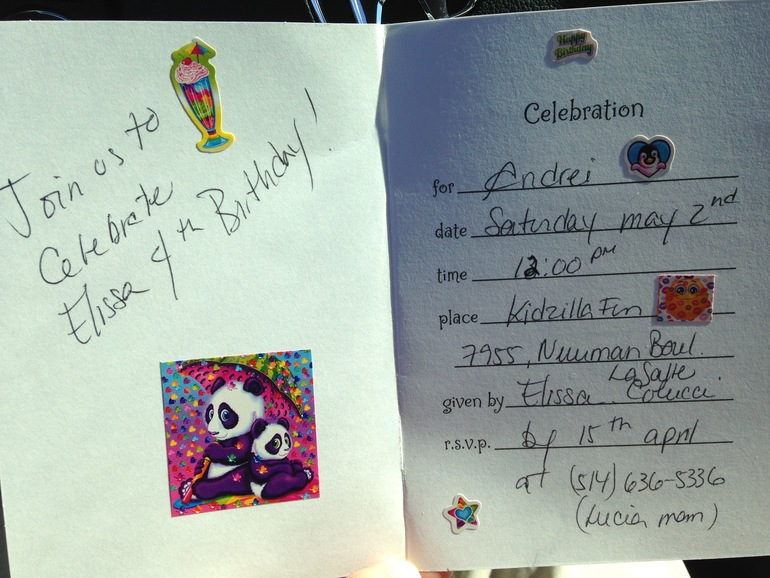 Join us to
Celebrate
Elissa 4th Birthday!
Happy
Birthday
Celebration
for Andrei
date Saturday may 2nd
time 12:00 PM
place Kidzilla Fun
7955, Newman Boul.
LaSalle
given by Elissa Colucci
r.s.v.p. by 15th april
at (514) 636-5336
(Lucia mom)